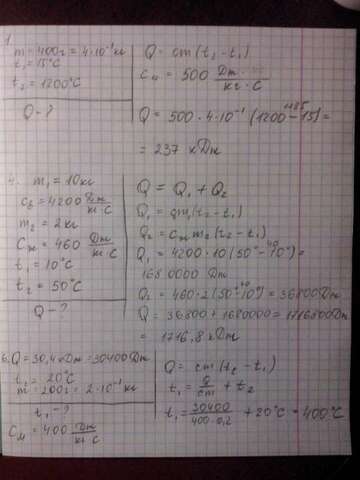 1.
m = 400г = 4·10⁻¹кг
t₁ = 15°C
t₂ = 1200°C
Q - ?
Q = cm(t₂ - t₁)
Cм = 500 Дж/кг·C
Q = 500·4·10⁻¹(1200 - 15) =
1185
= 237 кДж
4. m₁ = 10кг
c₁ = 4200 Дж/кг·C
m₂ = 2кг
Cж = 460 Дж/кг·C
t₁ = 10°C
t₂ = 50°C
Q - ?
Q = Q₁ + Q₂
Q₁ = cm₁(t₂ - t₁)
Q₂ = Cж m₂(t₂ - t₁)
Q₁ = 4200·10(50° - 10°) =
40
1680000 Дж
Q₂ = 460·2(50° - 10°) = 36800Дж
40
Q = 36800 + 1680000 = 1716800Дж
= 1716,8 кДж
6. Q = 30,4 кДж = 30400Дж
t₂ = 20°C
m = 200г = 2·10⁻¹кг
t₁ - ?
Cм = 400 Дж/кг·C
Q = cm(t₂ - t₁)
t₁ = Q/cm + t₂
t₁ = 30400/400·0,2 + 20°C = 400°C